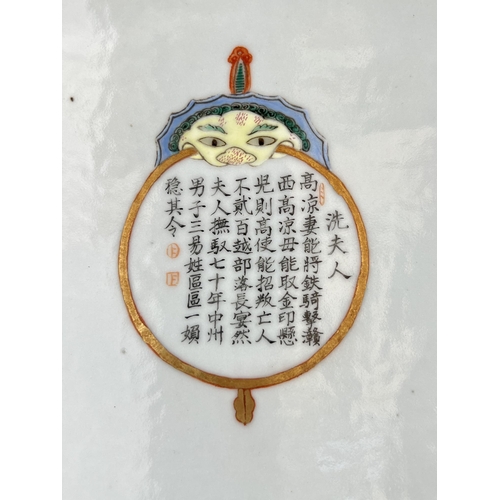 洗夫人
高凉妻能將鉄騎擊灨
西高凉母能取金印懸
児則高使能招叛亡人
不貳百越部落長宴然
夫人撫馭七十年中州
男子三易姓區區一嬪
稳其令